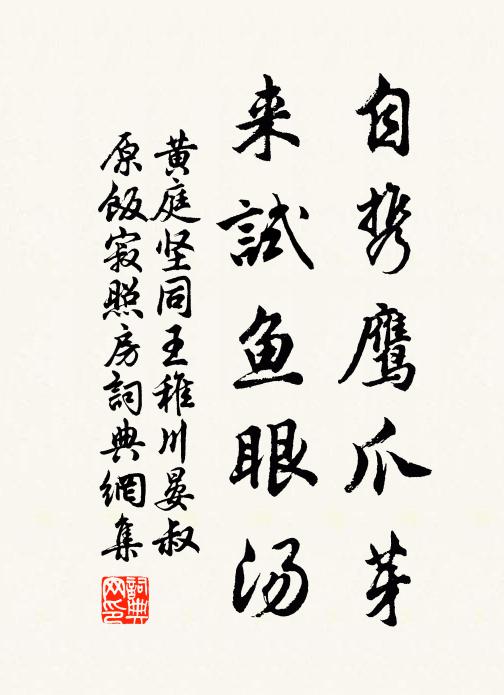 自携鹰爪芽
来試鱼眼汤
黄庭坚同王稚川晏叔
原飯寂照房詞典網集
詞典网印